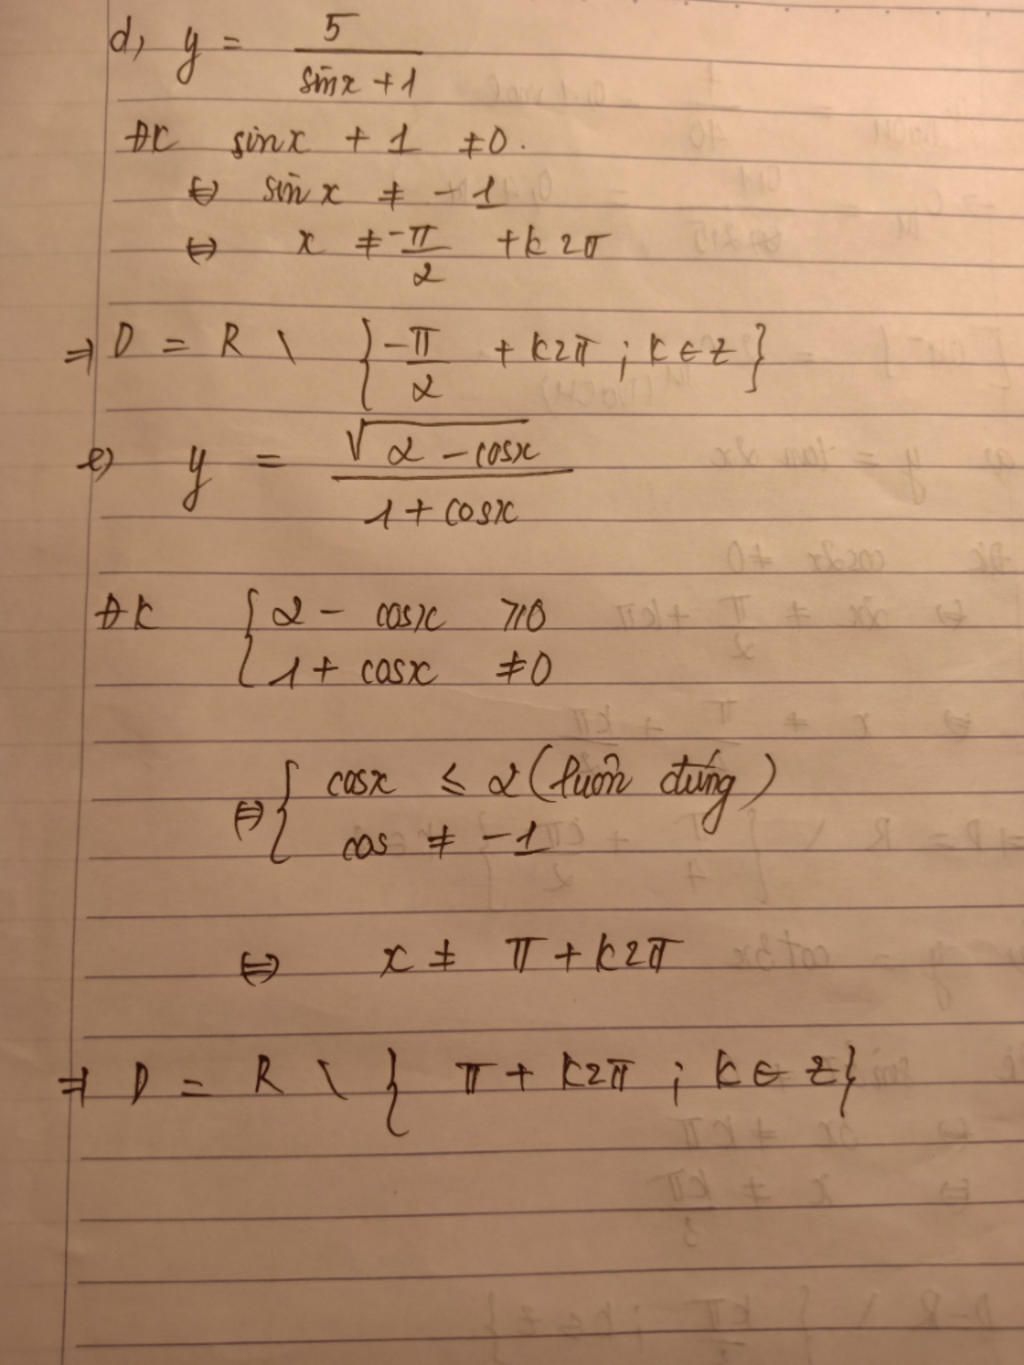 d, y = 5 / (sinx + 1)
ĐK sinx + 1 ≠ 0.
⇔ sin x ≠ -1
⇔ x ≠ -π/2 + k2π
⇒ D = R \ { -π/2 + k2π ; k ∈ Z }
e) y = √(2 - cosx) / (1 + cosx)
ĐK { 2 - cosx ≥ 0
1 + cosx ≠ 0
⇔ { cosx ≤ 2 (luôn đúng)
cos ≠ -1
⇔ x ≠ π + k2π
⇒ D = R \ { π + k2π ; k ∈ Z }